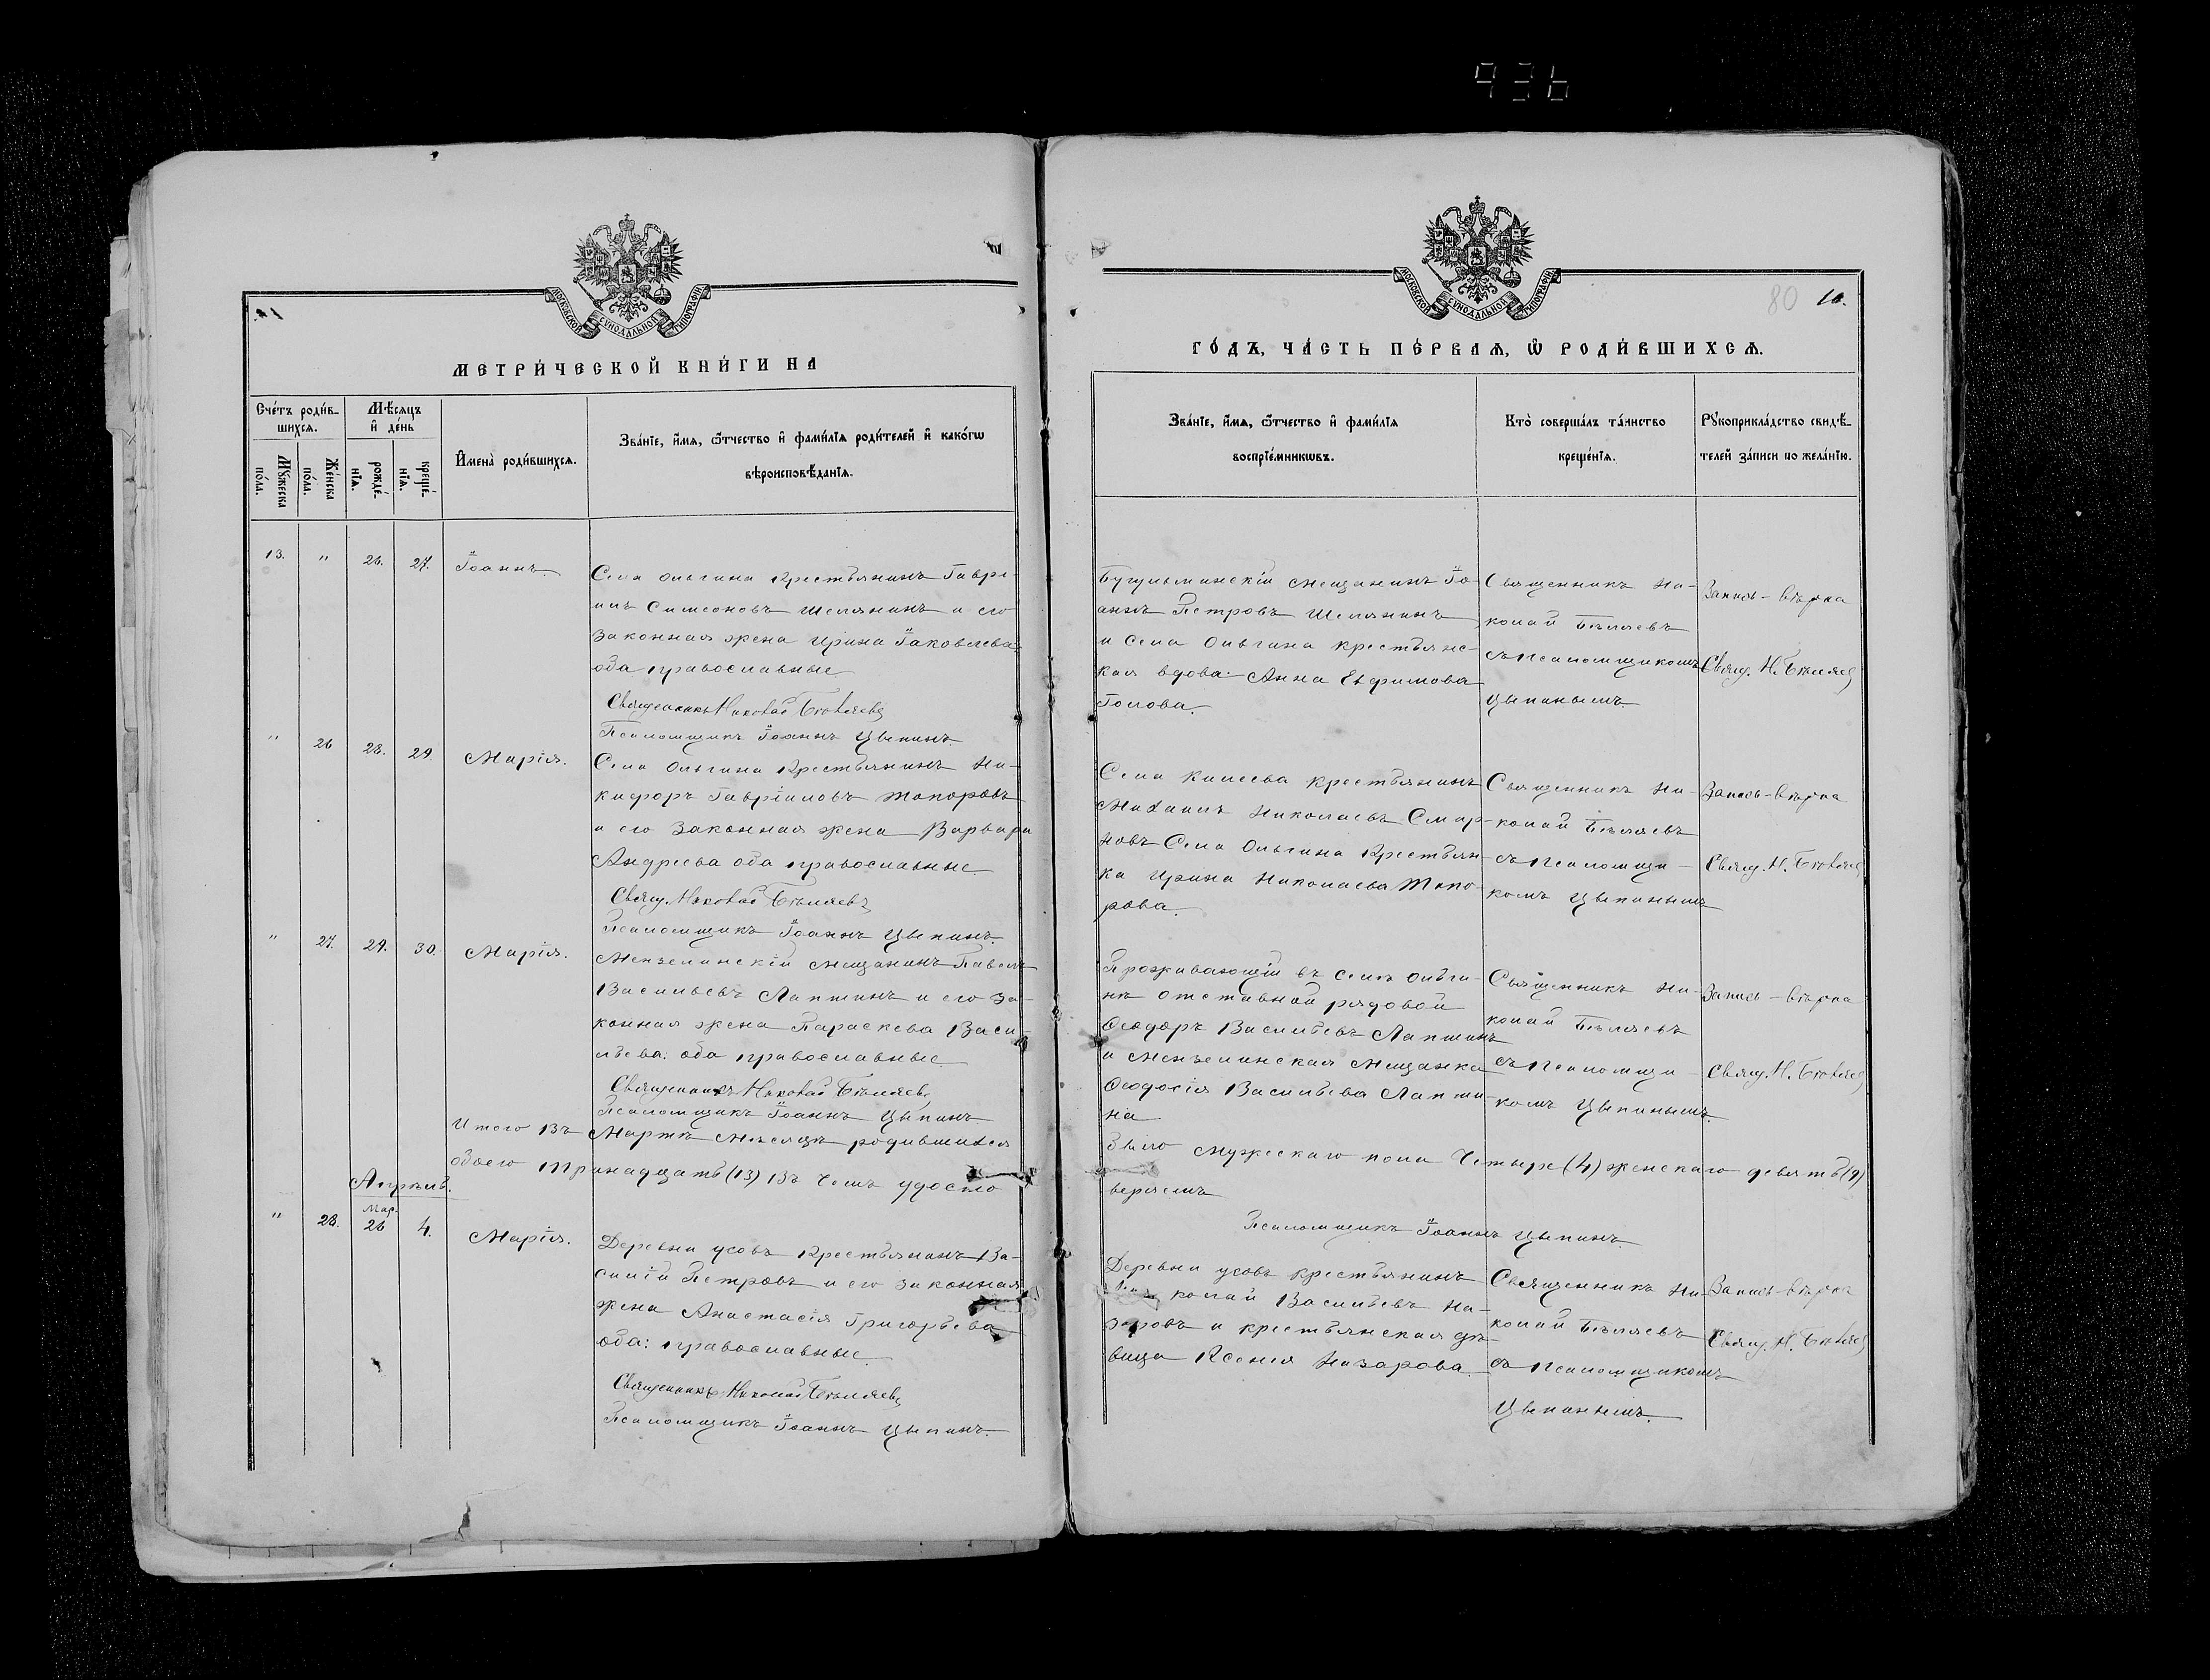 936
МОСКОВСКОЙ СѴНОДАЛЬНОЙ ТИПОГРАФІИ
МЕТРИ́ЧЕСКОЙ КНИ́ГИ НА
Сче́тъ роди́в-
шихсѧ.
Мѣ́сяцъ
и҆ де́нь
Мꙋ́жеска
по́ла.
Же́нска
по́ла.
рожде́-
нїѧ.
креще́-
нїѧ.
И҆мена̀ роди́вшихсѧ.
Зва́нїе, и҆́мѧ, ѻ҆́тчество и҆ фами́лїѧ роди́телей и҆ како́гѡ
вѣроисповѣ́данїѧ.
13. " 26. 27. Іоаннъ.
Села Ольгина Крестьянинъ Гаврі-
илъ Симеоновъ Шелянинъ и его
законная жена Ирина Іаковлева:
оба православные
Священникъ Николай Бѣляевъ
Псаломщикъ Іоаннъ Цыпинъ.
" 26 28. 29 Марія.
Села Ольгина Крестьянинъ Ни-
кифоръ Гавріиловъ Топоровъ
и его законная жена Варвара
Андреева оба православные.
Свящ. Николай Бѣляевъ
Псаломщикъ Іоаннъ Цыпинъ.
" 27. 29. 30. Марія.
Мензелинскій мещанинъ Павелъ
Васильевъ Лапшинъ и его за-
конная жена Параскева Васи-
льева. оба православные
Священникъ Николай Бѣляевъ
Псаломщикъ Іоаннъ Цыпинъ
Итого въ Мартѣ Мѣсяцѣ родившихся
обоего тринадцать (13) въ чемъ удосто
Апрѣль.
" 28. Мар. 26 4. Марія.
Деревни усовъ Крестьянинъ Ва-
силій Петровъ и его законная
жена Анастасія Григорьева
оба: православные.
Священникъ Николай Бѣляевъ
Псаломщикъ Іоаннъ Цыпинъ.
МОСКОВСКОЙ СѴНОДАЛЬНОЙ ТИПОГРАФІИ
80 10.
ГО́ДЪ, ЧА́СТЬ ПЕ́РВАѦ, Ѡ҆ РОДИ́ВШИХСѦ.
Зва́нїе, и҆́мѧ, ѻ҆́тчество и҆ фами́лїѧ
воспрїе́мникѡвъ.
Кто̀ соверша́лъ та́инство
креще́нїѧ.
Рꙋкоприкла́дство свидѣ́-
телей за́писи по жела́нїю.
Бугульминскій мещанинъ Іо-
аннъ Петровъ Шелянинъ
и села Ольгина крестьянс-
кая вдова Анна Евфимова
Голова.
Священникъ Ни-
колай Бѣляевъ
съ псаломщикомъ
Цыпинымъ.
Запись-вѣрна
Свящ. Н. Бѣляев
Села Килеева крестьянинъ
Михаилъ Николаевъ Смир-
новъ Села Ольгина Крестьян-
ка Ирина Николаева Топо-
рова.
Священникъ Ни-
колай Бѣляевъ
съ псаломщи-
комъ Цыпинымъ
Запись-вѣрна
Свящ. Н. Бѣляев
Проживающій въ селѣ Ольги-
нѣ отставной рядовой
Ѳеодоръ Васильевъ Лапшинъ
и Мензелинская мещанка
Ѳеодосія Васильева Лапши-
на
Священникъ Ни-
колай Бѣляевъ
съ псаломщи-
комъ Цыпинымъ.
Запись-вѣрна
Свящ. Н. Бѣляев
было мужескаго пола Четыре (4) женскаго девять (9)
веряемъ
Псаломщикъ Іоаннъ Цыпинъ.
Деревни усовъ крестьянинъ
Николай Васильевъ На-
заровъ и крестьянская дѣ-
вица Ксенія Назарова.
Священникъ Ни-
колай Бѣляевъ
съ псаломщикомъ
Цыпинымъ.
Запись-вѣрна
Свящ. Н. Бѣляев